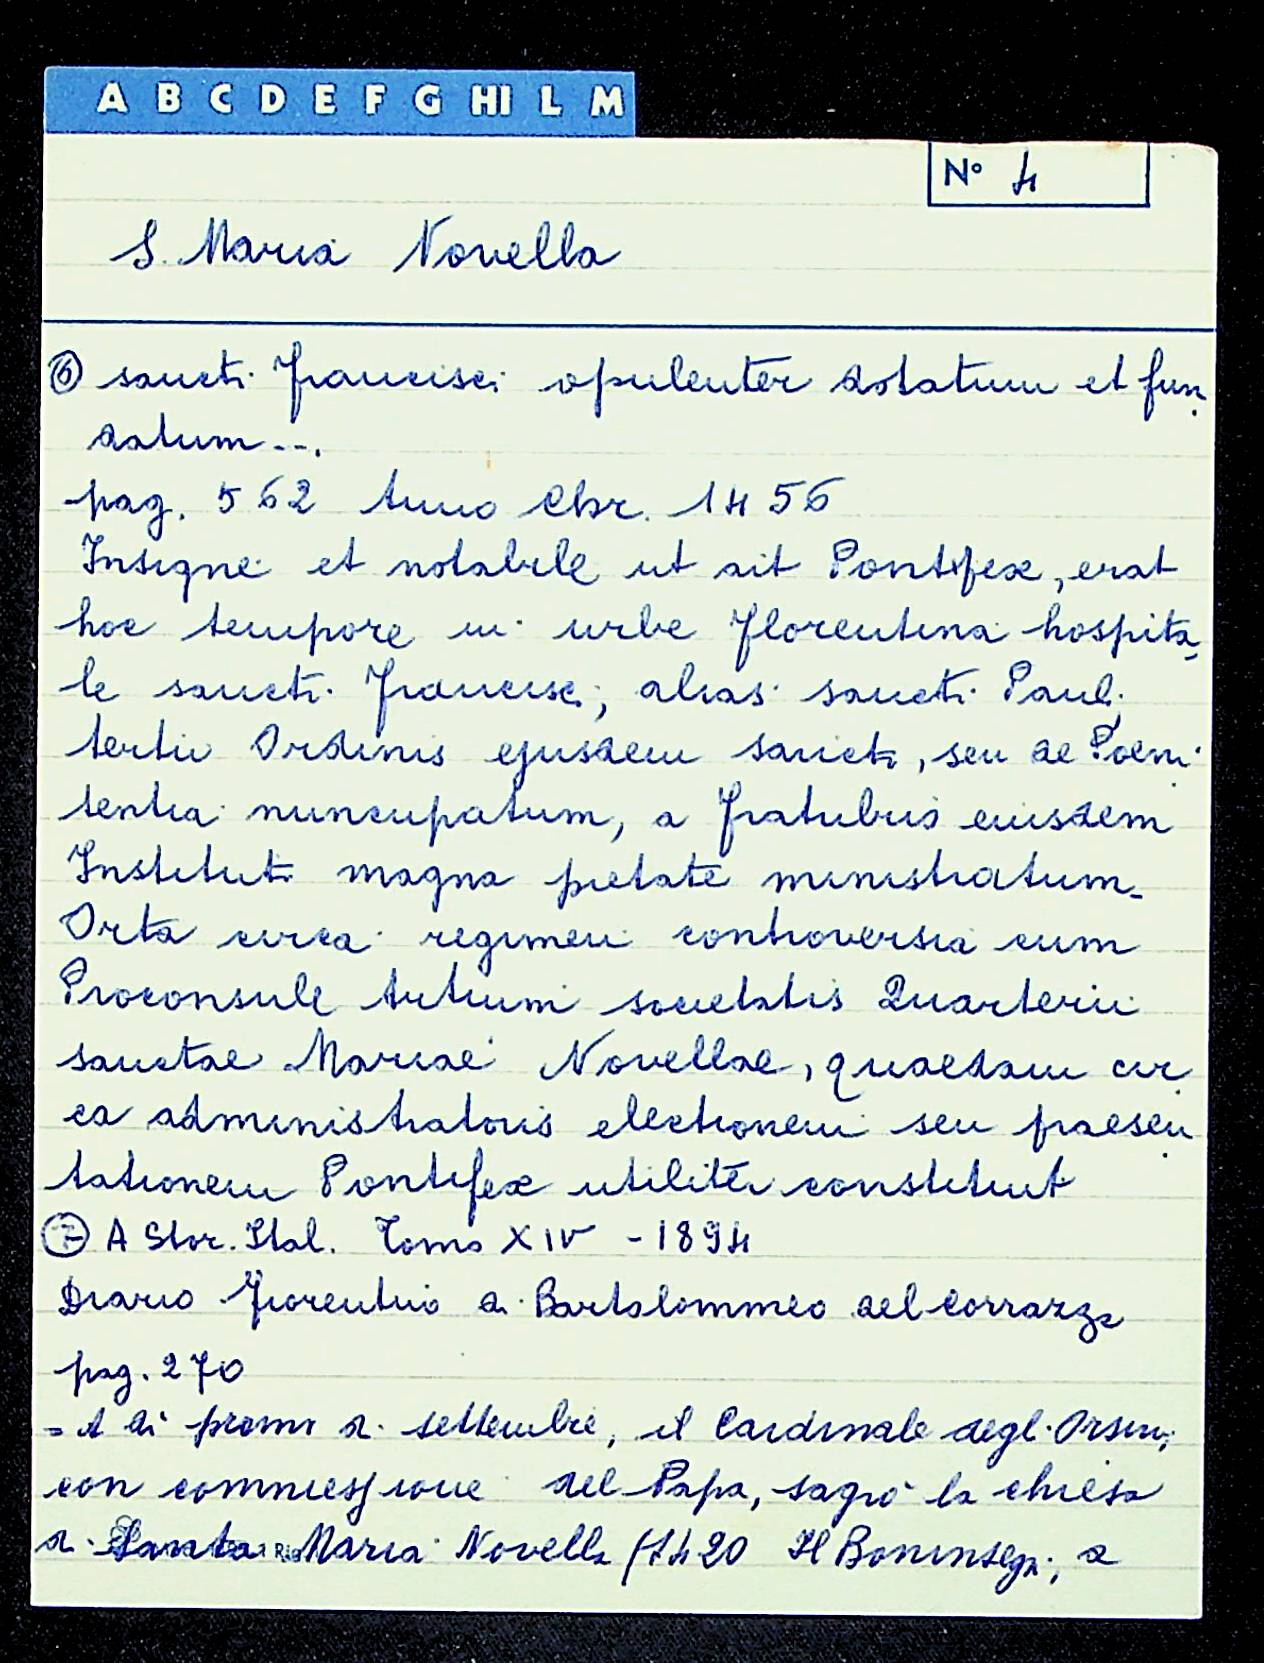 A B C D E F G HI L M
N° 4
S. Maria Novella
⑥ sancti Francisci opulenter dotatum et fun
datum...
pag. 562 Anno Chr. 1456
Insigne et notabile ut ait Pontifex, erat
hoc tempore in urbe Florentina hospita
le sancti Francisci, alias sancti Pauli
tertii Ordinis ejusdem sancti, seu de Poeni
tentia nuncupatum, a fratribus eiusdem
Instituti magna pietate ministratum.
Orta circa regimen controversia cum
Proconsule Artium societatis Quarterii
sanctae Mariae Novellae, quaedam cir
ca administratoris electionem seu praesen
tationem Pontifex utiliter constituit
⑦ A Stor. Ital. Tomo XIV - 1894
Diario Fiorentino di Bartolommeo del Corrazza
pag. 270
= A di primo di settembre, il Cardinale degli Orsini,
con commessione del Papa, sagrò la chiesa
di Santa Maria Novella (1420 Il Boninsegni, a